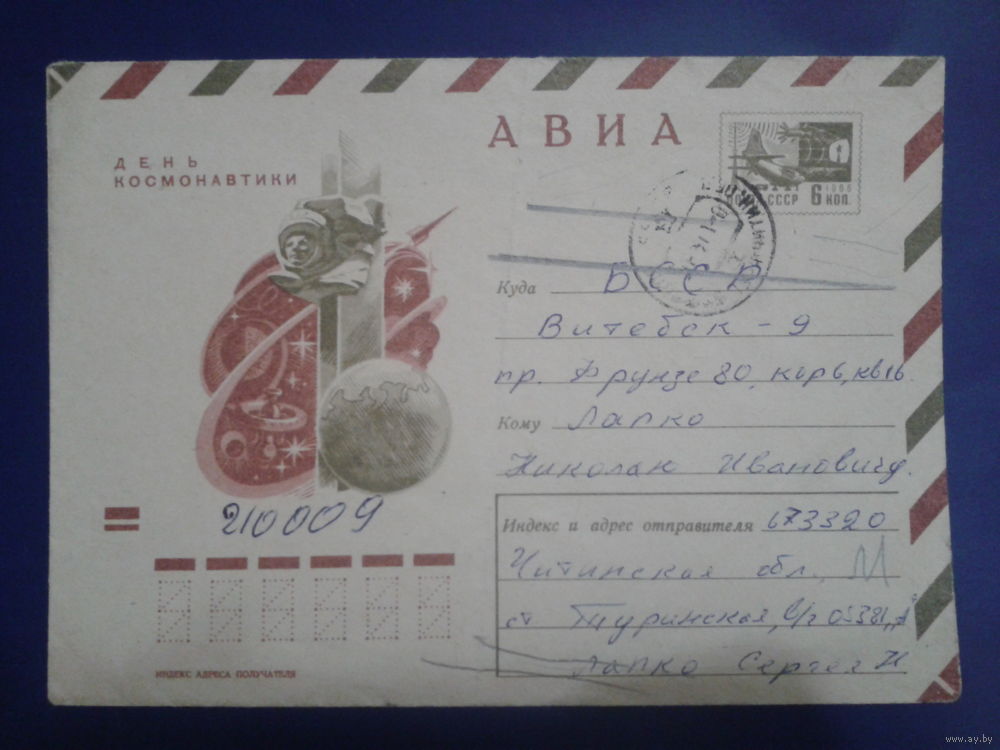 АВИА
ДЕНЬ
КОСМОНАВТИКИ
1966
ПОЧТА СССР 6 КОП.
Куда БССР
Витебск - 9
пр. Фрунзе 80, кор 6, кв 16.
Кому Лапко
Николаю Ивановичу.
210009
Индекс и адрес отправителя 673320
Читинская обл., М
ст Туринская, в/ч 05381 „А"
Лапко Сергея Н
ИНДЕКС АДРЕСА ПОЛУЧАТЕЛЯ
www.ay.by